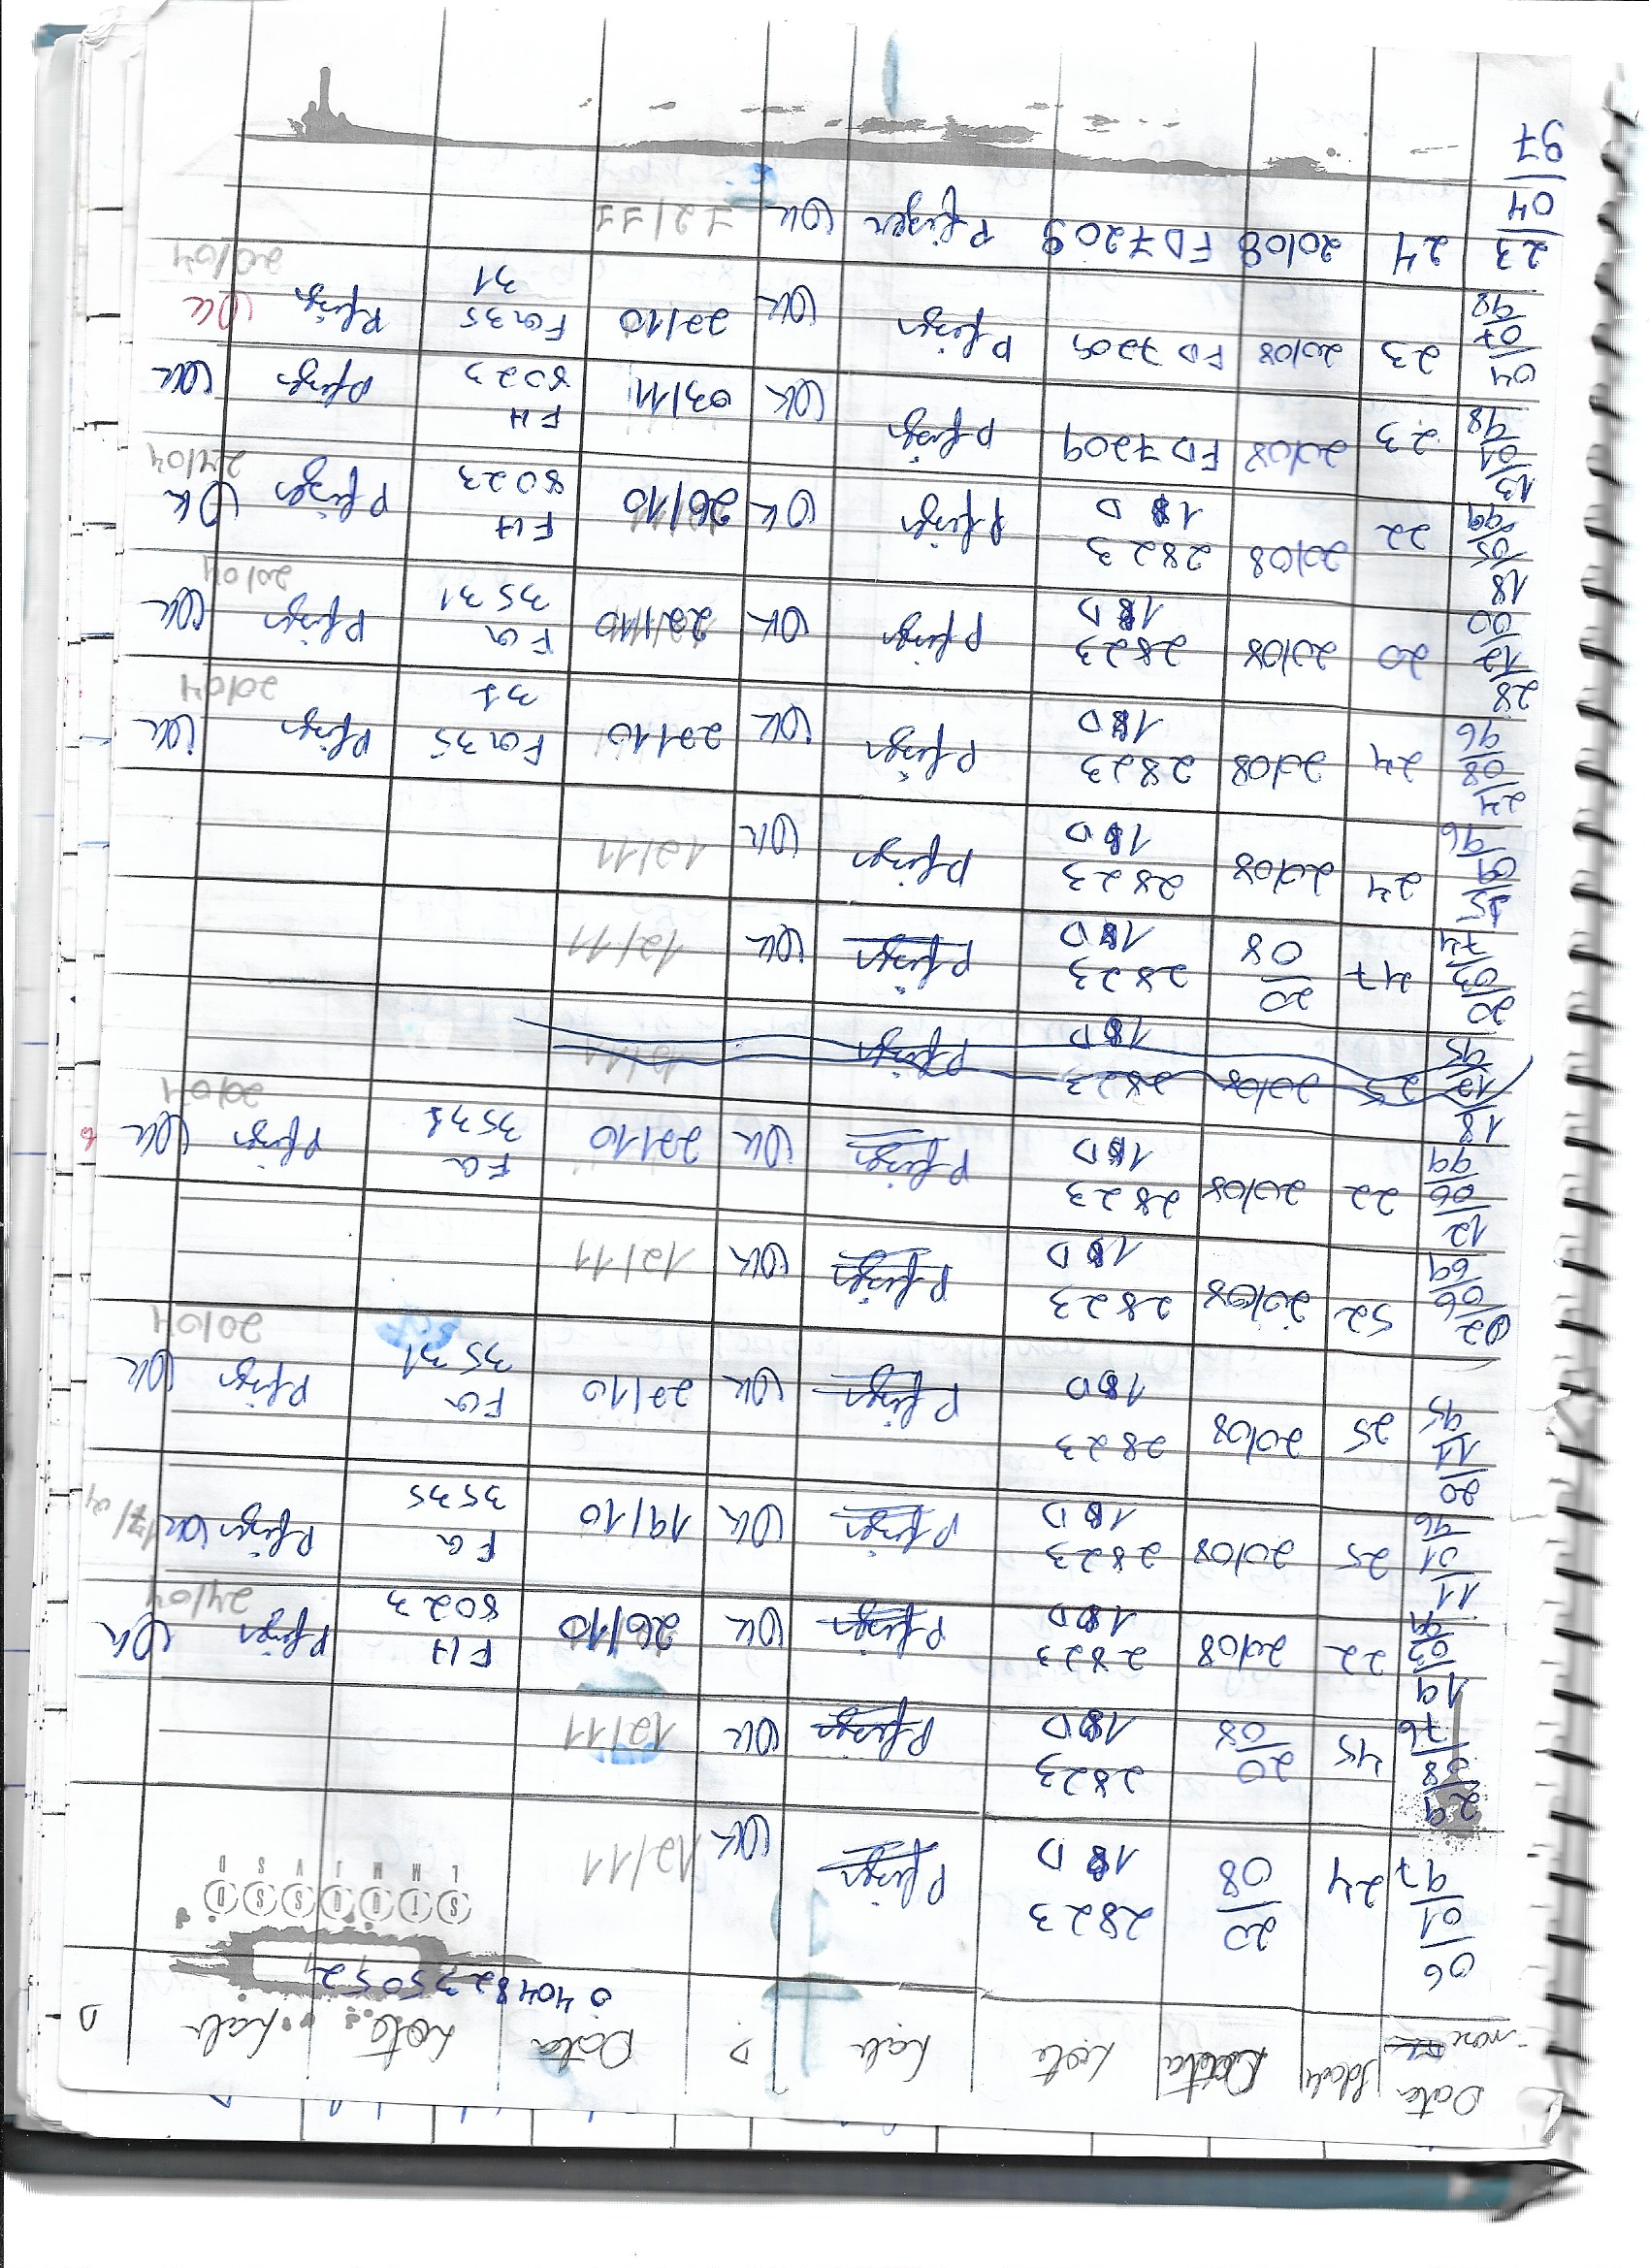 Data Idade Data Lote Lab D Data Lote Lab D
nasc
0 40482 35052
S T Q Q S S D
L M M J V S D
06/01/97 24 20/08 2823 18D Pfizer OK 12/11
29/08/76 45 20/08 2823 18D Pfizer OK 12/11
19/03/99 22 20/08 2823 18D Pfizer OK 26/10 FH 8023 Pfizer OK 24/04
11/01/96 25 20/08 2823 18D Pfizer OK 19/10 FG 3535 Pfizer OK 17/04
20/11/95 25 20/08 2823 18D Pfizer OK 22/10 FG 3531 Pfizer OK 20/04
02/06/69 52 20/08 2823 18D Pfizer OK 12/11
12/06/99 22 20/08 2823 18D Pfizer OK 22/10 FG 3531 Pfizer OK 20/04
18/12/95 25 20/08 2823 18D Pfizer 12/11
20/03/74 47 20/08 2823 18D Pfizer OK 12/11
15/09/96 24 20/08 2823 18D Pfizer OK 12/11
24/08/96 24 20/08 2823 18D Pfizer OK 22/10 FG35 31 Pfizer OK 20/04
28/12/00 20 20/08 2823 18D Pfizer OK 22/10 FG 3531 Pfizer OK 20/04
18/05/99 22 20/08 2823 18D Pfizer OK 26/10 FH 8023 Pfizer OK 24/04
13/01/98 23 20/08 FD7209 Pfizer OK 03/11 FH 8023 Pfizer OK
04/07/98 23 20/08 FD7209 Pfizer OK 22/10 FG35 31 Pfizer OK 20/04
23/04/97 24 20/08 FD7209 Pfizer OK 12/11